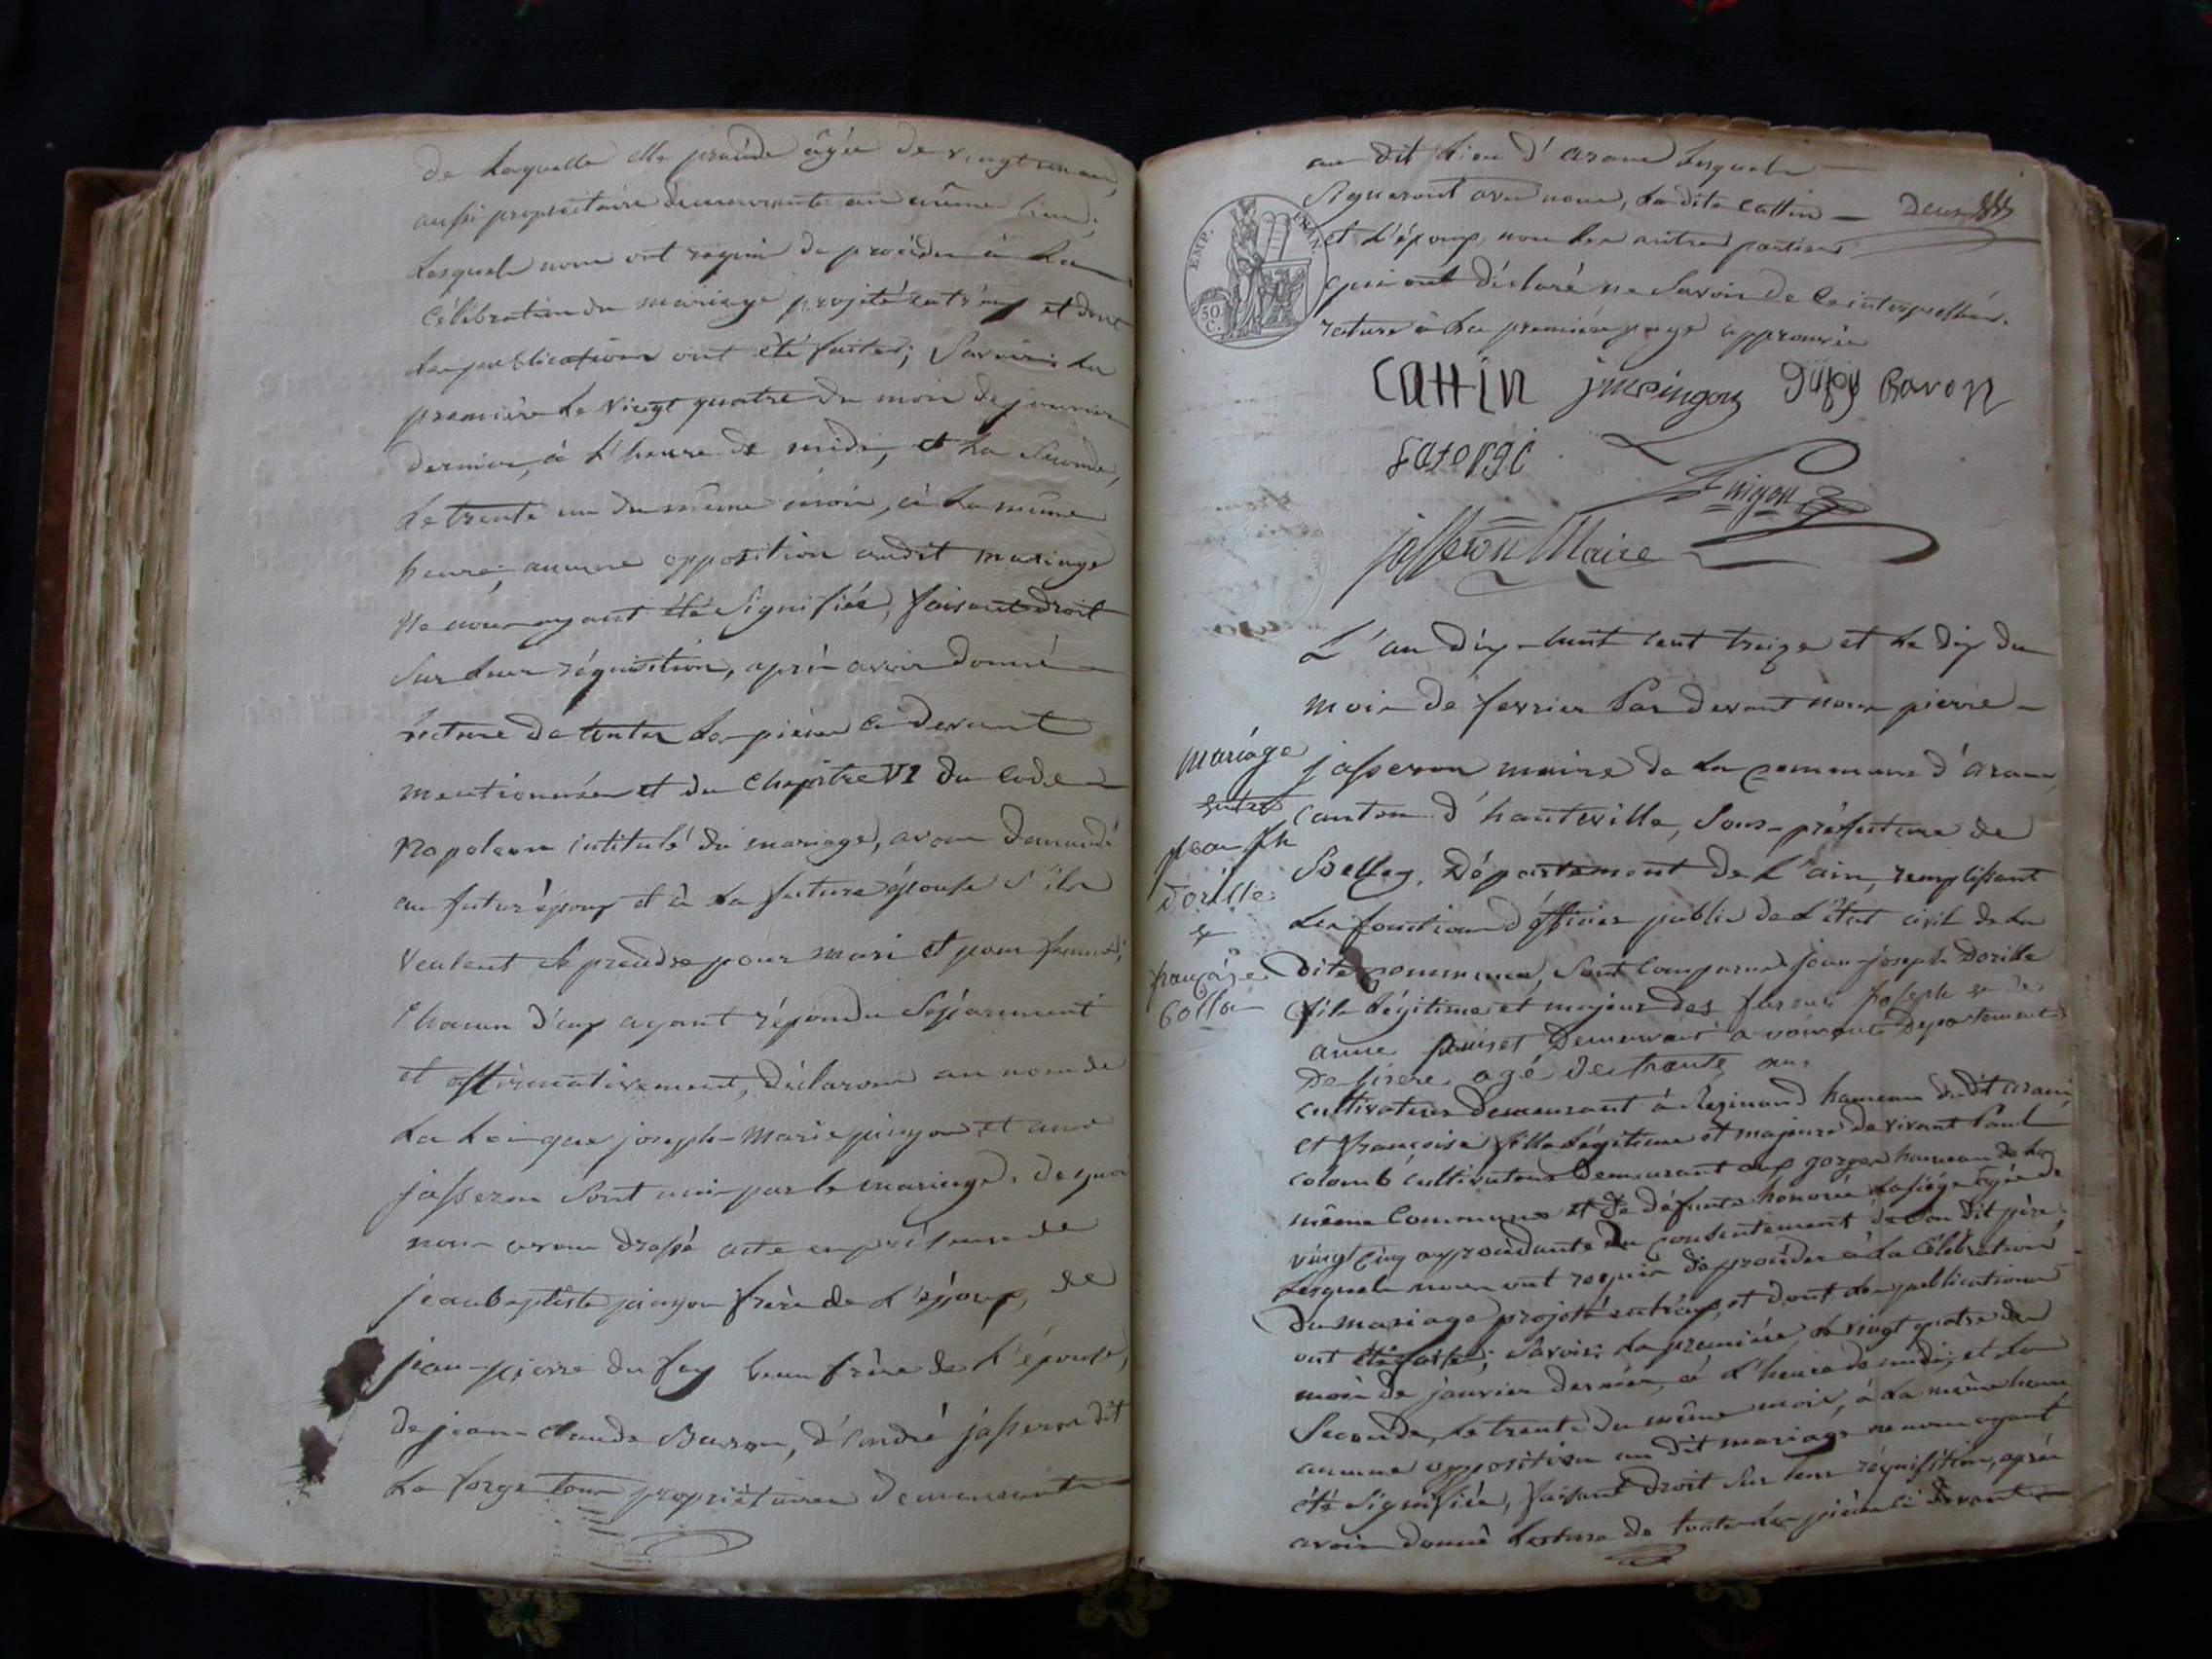 de Laquelle elle procède âgée de vingt un an,
aussi propriétaire demeurante au même lieu.
Lesquels nous ont requis de procéder à la
Célébration du mariage projeté entr'eux et dont
Les publications ont été faites; Savoir: La
première Le Vingt quatre du mois de janvier
dernier, à L'heure de midi, et La Seconde,
Le trente un du même mois, à La même
heure, aucune opposition audit mariage
Ne nous ayant été Signifiée, faisant droit
Sur Leur réquisition, après avoir donné
Lecture de toutes Les pièces ci devant
mentionnées et du Chapitre VI du Code
Napoleon intitulé du mariage, avons demandé
au futur époux et à La future épouse S'ils
Veulent Se prendre pour mari et pour femme;
Chacun d'eux ayant répondu Séparément
et affirmativement, déclarons au nom de
La Loi que joseph-Marie pingon et anne
jasseron Sont unis par le mariage. de quoi
nous avons dressé acte en présence de
jean baptiste pingon frère de L'époux, de
jean-pierre du fey beau frère de L'épouse,
de jean-claude Baron, d'andré jasseron dit
La forge tous propriétaires demeurants
au dit Lieu d'aranc Lesquels
Signeront avec nous, La dite Cattin
et L'époux, non Les autres parties
qui ont déclaré ne Savoir de Ce interpellés.
rature à La première page approuvée
deux
EMP. FRAN.
50 C.
CAttiN jmpingon dufey Baron
Laforge
Pingon
jasseron Maire
L'an dix-huit cent treize et Le dix du
mois de fevrier Par devant nous pierre
jasseron maire de La commune d'aranc,
canton d'hauteville, Sous-préfecture de
Belley, Département de L'ain, remplissant
Les fonctions d'officier public de L'état civil de La
dite commune, Sont Comparus jean-joseph Dorille
fils Légitime et majeur des furent joseph et de
anne Demeurant a Departement
De lisere agé de trante ans
cultivateur demeurant à Résinand hameau du dit aranc,
et françoise fille Légitime et majeure de vivant Paul
colomb cultivateur Demeurant aux gorges hameau de La
même Commune et de défunte honorée âgée de
vingt Cinq ans procédante du consentement de Son dit père;
Lesquels nous ont requis de procéder à La Célébration
du mariage projeté entr'eux, et dont Les publications
ont été faites; Savoir: La première, Le vingt quatre du
mois de janvier dernier, à L'heure de midi; et La
Seconde, Le trente du même mois, à La même heure
aucune opposition au dit mariage ne nous ayant
été Signifiée, faisant droit Sur Leur réquisition, après
avoir donné Lecture de toutes Les pièces ci devant
mariage
entre
jean jph
Dorille
et
françoise